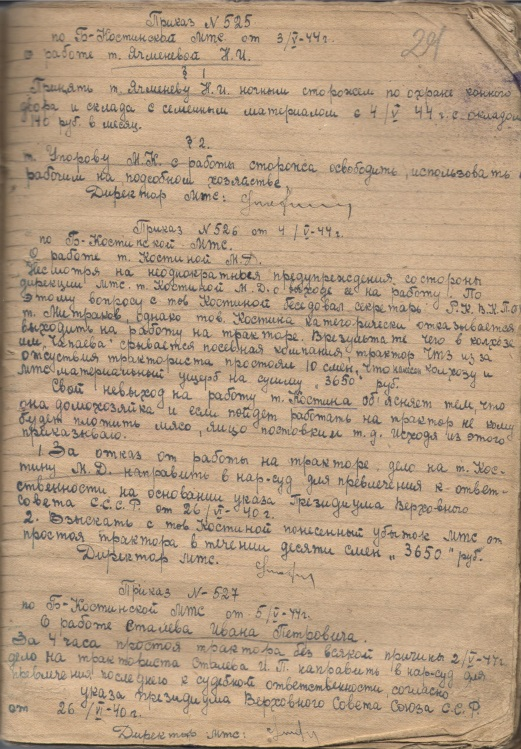 Приказ № 525
291
по Б-Костинской Мтс от 3/V-44 г.
о работе т. Ячменевой Н.И.
§ 1
Принять т. Ячменеву Н.И. ночным сторожем по охране конного
двора и склада с семенным материалом с 4/V 44 г. с окладом
140 руб. в месяц.
§ 2.
т. Упорову М.К. с работы сторожа освободить, использовать
рабочим на подсобном хозяйстве
Директор Мтс:
Приказ № 526 от 4/V-44 г.
по Б-Костинской Мтс.
О работе т. Костиной М.Д.
Несмотря на неоднократные предупреждения со стороны
дирекции Мтс т. Костиной М.Д. о выходе её на работу. По
этому вопросу с тов Костиной беседовал секретарь Р.К.В.К.П.(б)
т. Митраков, однако тов. Костина категорически отказывается
выходить на работу на тракторе. Врезультате чего в колхозе
им. Чапаева срывается посевная компания, трактор ЧТЗ из за
отсуствия тракториста простоял 10 смен, что нанес колхозу и
мтс материальный ущерб на сумму „3650" руб.
Свой невыход на работу т. Костина об'ясняет тем, что
она домохозяйка и если пойдет работать на трактор не кому
будет плотить мясо, яйцо поставки и т.д. Исходя из этого
приказываю.
1. За отказ от работы на тракторе, дело на т. Кос-
тину М.Д. направить в нар-суд для превлечения к ответ-
ственности на основании указа Президиума Верховного
Совета С.С.С.Р от 26/VI-40 г.
2. Взыскать с тов Костиной понесенный убыток Мтс от
простоя трактора в течении десяти смен „3650" руб.
Директор мтс.
Приказ № 527
по Б-Костинской Мтс от 5/V-44 г.
О работе Сталева Ивана Петровича.
За 4 часа простоя трактора без всякой причины 2/V-44 г.
дело на тракториста Сталева И.П. направить в нар-суд для
превлечения последнего к судебной ответственности, согласно
указа Президиума Верховного Совета Союза С.С.Р.
от 26/VI-40 г.
Директор Мтс: